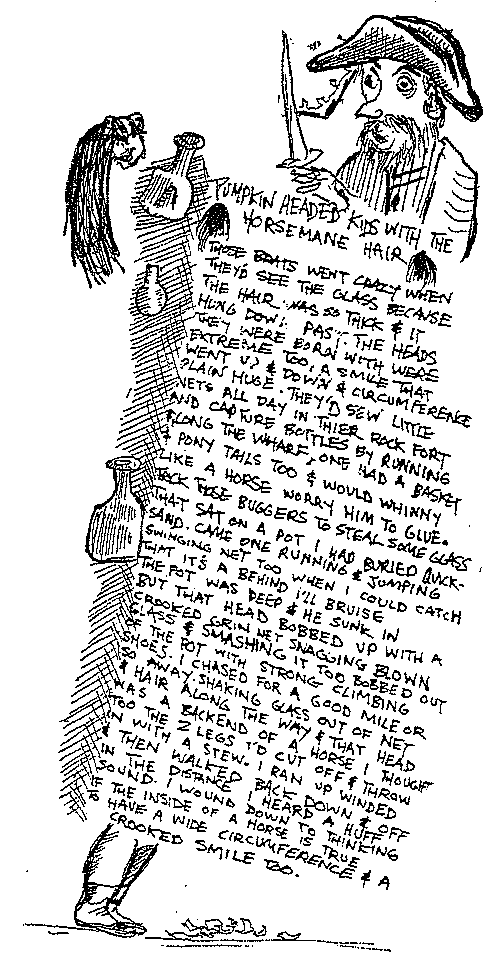 PUMPKIN HEADED KIDS WITH THE
HORSEMANE HAIR
THOSE BRATS WENT CRAZY WHEN
THEY'D SEE THE GLASS BECAUSE
THE HAIR WAS SO THICK & IT
HUNG DOWN PAST THE HEADS
THEY WERE BORN WITH WERE
EXTREME TOO, A SMILE THAT
WENT UP & DOWN & CIRCUMFERENCE
PLAIN HUGE. THEY'D SEW LITTLE
NETS ALL DAY IN THIER ROCK FORT
AND CAPTURE BOTTLES BY RUNNING
ALONG THE WHARF, ONE HAD A BASKET
& PONY TAILS TOO & WOULD WHINNY
LIKE A HORSE WORRY HIM TO GLUE.
TOCK THOSE BUGGERS TO STEAL SOME GLASS
THAT SAT ON A POT I HAD BURIED QUICK-
SAND. CAME ONE RUNNING & JUMPING
SWINGING NET TOO WHEN I COULD CATCH
THAT IT'S A BEHIND I'LL BRUISE
THE POT WAS DEEP & HE SUNK IN
BUT THAT HEAD BOBBED UP WITH A
CROOKED GRIN NET SNAGGING BLOWN
GLASS & SMASHING IT TOO BOBBED OUT
OF THE POT WITH STRONG CLIMBING
SHOES. I CHASED FOR A GOOD MILE OR
SO AWAY, SHAKING GLASS OUT OF NET
& HAIR ALONG THE WAY & THAT HEAD
WAS A BACKEND OF A HORSE I THOUGHT
TOO THE 2 LEGS I'D CUT OFF & THROW
IN WITH A STEW. I RAN UP WINDED
& THEN WALKED BACK DOWN & OFF
IN THE DISTANCE I HEARD A HUFF
SOUND. I WOUND DOWN TO THINKING
IF THE INSIDE OF A HORSE IS TRUE
TO HAVE A WIDE CIRCUMFERENCE & A
CROOKED SMILE TOO.